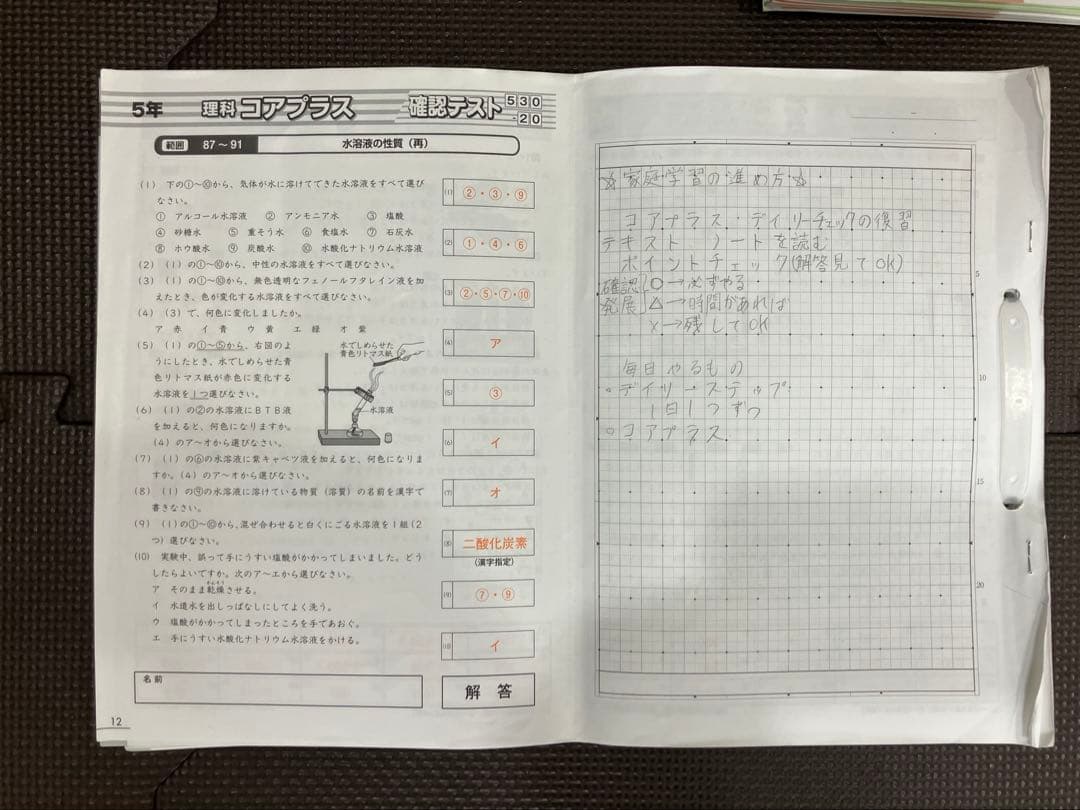 5年 理科 コアプラス 確認テスト 530-20
範囲 87～91 水溶液の性質（再）
(1) 下の①～⑩から、気体が水に溶けてできた水溶液をすべて選び
なさい。
① アルコール水溶液 ② アンモニア水 ③ 塩酸
④ 砂糖水 ⑤ 重そう水 ⑥ 食塩水 ⑦ 石灰水
⑧ ホウ酸水 ⑨ 炭酸水 ⑩ 水酸化ナトリウム水溶液
(2) (1)の①～⑩から、中性の水溶液をすべて選びなさい。
(3) (1)の①～⑩から、無色透明なフェノールフタレイン液を加
えたとき、色が変化する水溶液をすべて選びなさい。
(4) (3)で、何色に変化しましたか。
ア 赤 イ 青 ウ 黄 エ 緑 オ 紫
(5) (1)の①～⑤から、右図のよ
うにしたとき、水でしめらせた青
色リトマス紙が赤色に変化する
水溶液を1つ選びなさい。
水でしめらせた
青色リトマス紙
水溶液
(6) (1)の②の水溶液にＢＴＢ液
を加えると、何色になりますか。
(4)のア～オから選びなさい。
(7) (1)の⑥の水溶液に紫キャベツ液を加えると、何色になりま
すか。(4)のア～オから選びなさい。
(8) (1)の⑨の水溶液に溶けている物質（溶質）の名前を漢字で
書きなさい。
(9) (1)の①～⑩から、混ぜ合わせると白くにごる水溶液を1組(2
つ)選びなさい。
(10) 実験中、誤って手にうすい塩酸がかかってしまいました。どう
したらよいですか。次のア～エから選びなさい。
ア そのまま乾燥させる。
かんそう
イ 水道水を出しっぱなしにしてよく洗う。
ウ 塩酸がかかってしまったところを手であおぐ。
エ 手にうすい水酸化ナトリウム水溶液をかける。
(1) ②・③・⑨
(2) ①・④・⑥
(3) ②・⑤・⑦・⑩
(4) ア
(5) ③
(6) イ
(7) オ
(8) 二酸化炭素
(漢字指定)
(9) ⑦・⑨
(10) イ
名前
解答
12
☆家庭学習の進め方☆
コアプラス・デイリーチェックの復習
テキスト ノートを読む
ポイントチェック(解答見てOK)
確認 ○→必ずやる
発展 △→時間があれば
×→残してOK
毎日やるもの
○デイリーステップ
1日1つずつ
○コアプラス
5
10
15
20